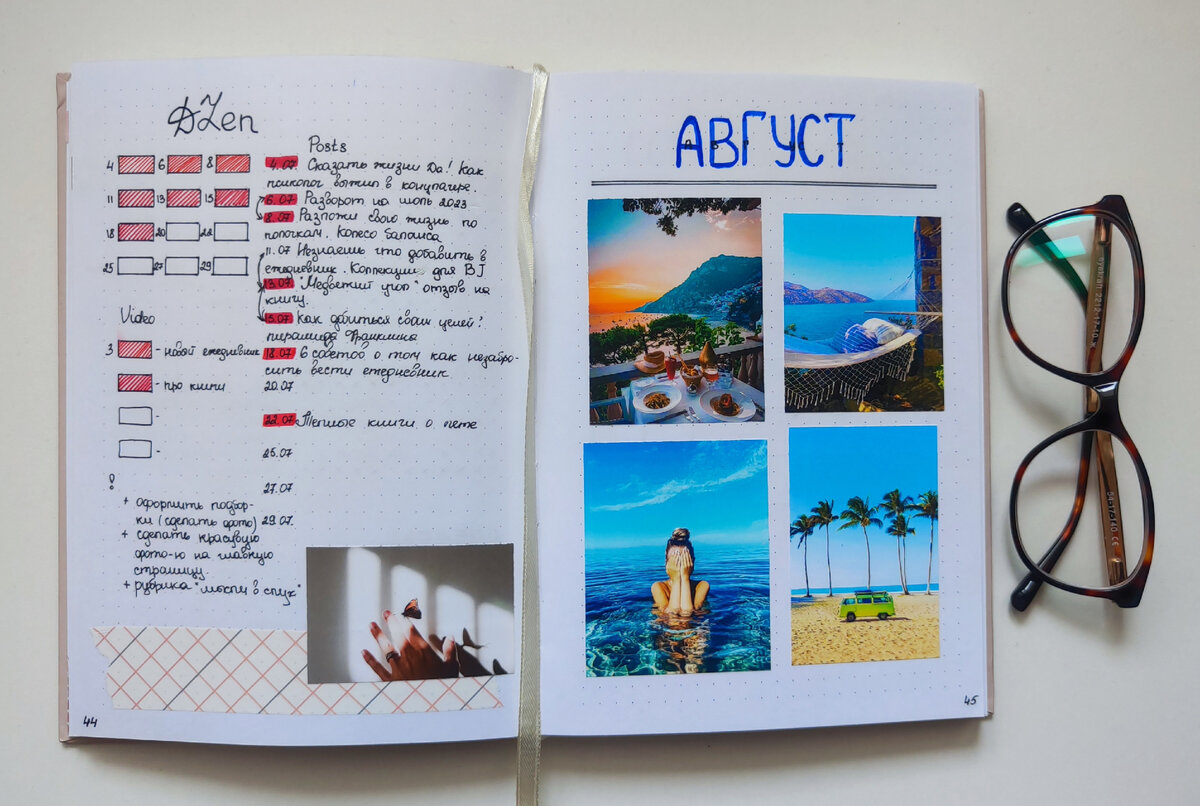 DZen
Posts
4 6 8
11 13 15
18 20 22
25 27 29
4.07 Сказать жизни Да! Как
психолог выжил в концлагере.
6.07 Разворот на июль 2023
8.07 Разложи свою жизнь по
полочкам. Колесо баланса
11.07 Незнаешь что добавить в
ежедневник. Коллекции для BJ
13.07 "Медвежий угол" отзыв на
книгу.
15.07 Как добиться своих целей?
пирамида Франклина
18.07 6 советов о том как незабро-
сить вести ежедневник.
20.07
22.07 Теплые книги о лете
25.07
27.07
29.07.
Video
3 - новый ежедневник
- про книги
-
-
!
+ оформить подбор-
ки (сделать фото)
+ сделать красивую
фото-ю на главную
страницу.
+ рубрика "мысли в слух"
44
АВГУСТ
45